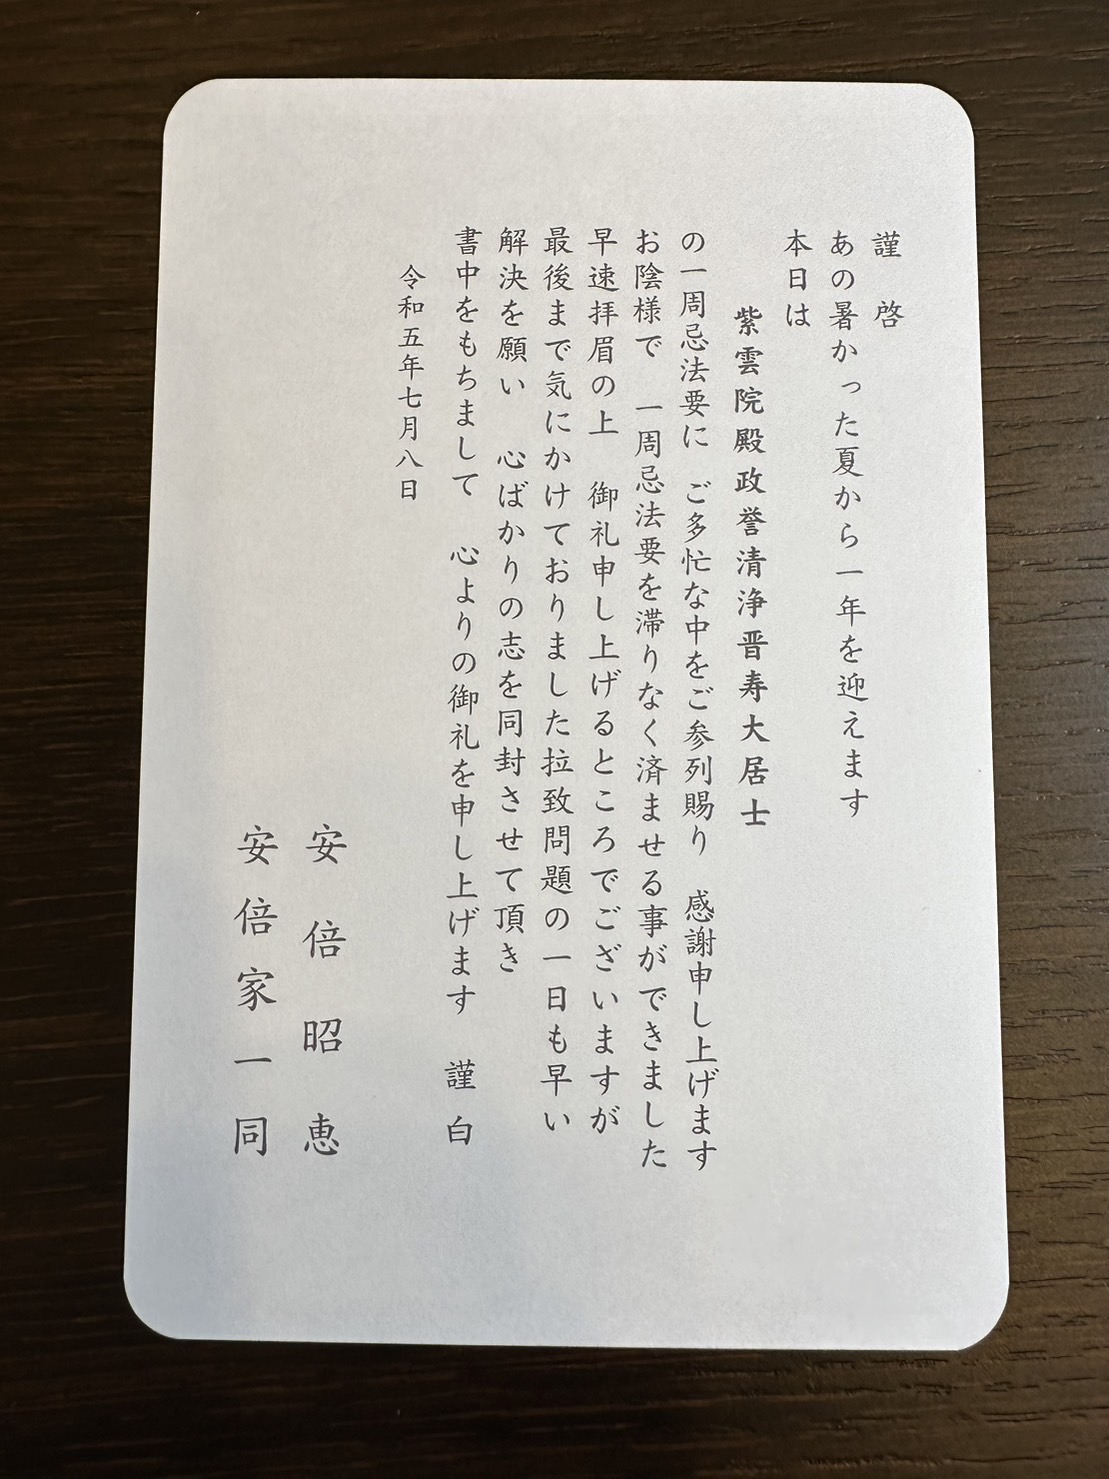 謹　啓
あの暑かった夏から一年を迎えます
本日は
紫雲院殿政誉清浄晋寿大居士
の一周忌法要に　ご多忙な中をご参列賜り　感謝申し上げます
お陰様で　一周忌法要を滞りなく済ませる事ができました
早速拝眉の上　御礼申し上げるところでございますが
最後まで気にかけておりました拉致問題の一日も早い
解決を願い　心ばかりの志を同封させて頂き
書中をもちまして　心よりの御礼を申し上げます　謹　白
令和五年七月八日
安　倍　昭　恵
安倍家一同